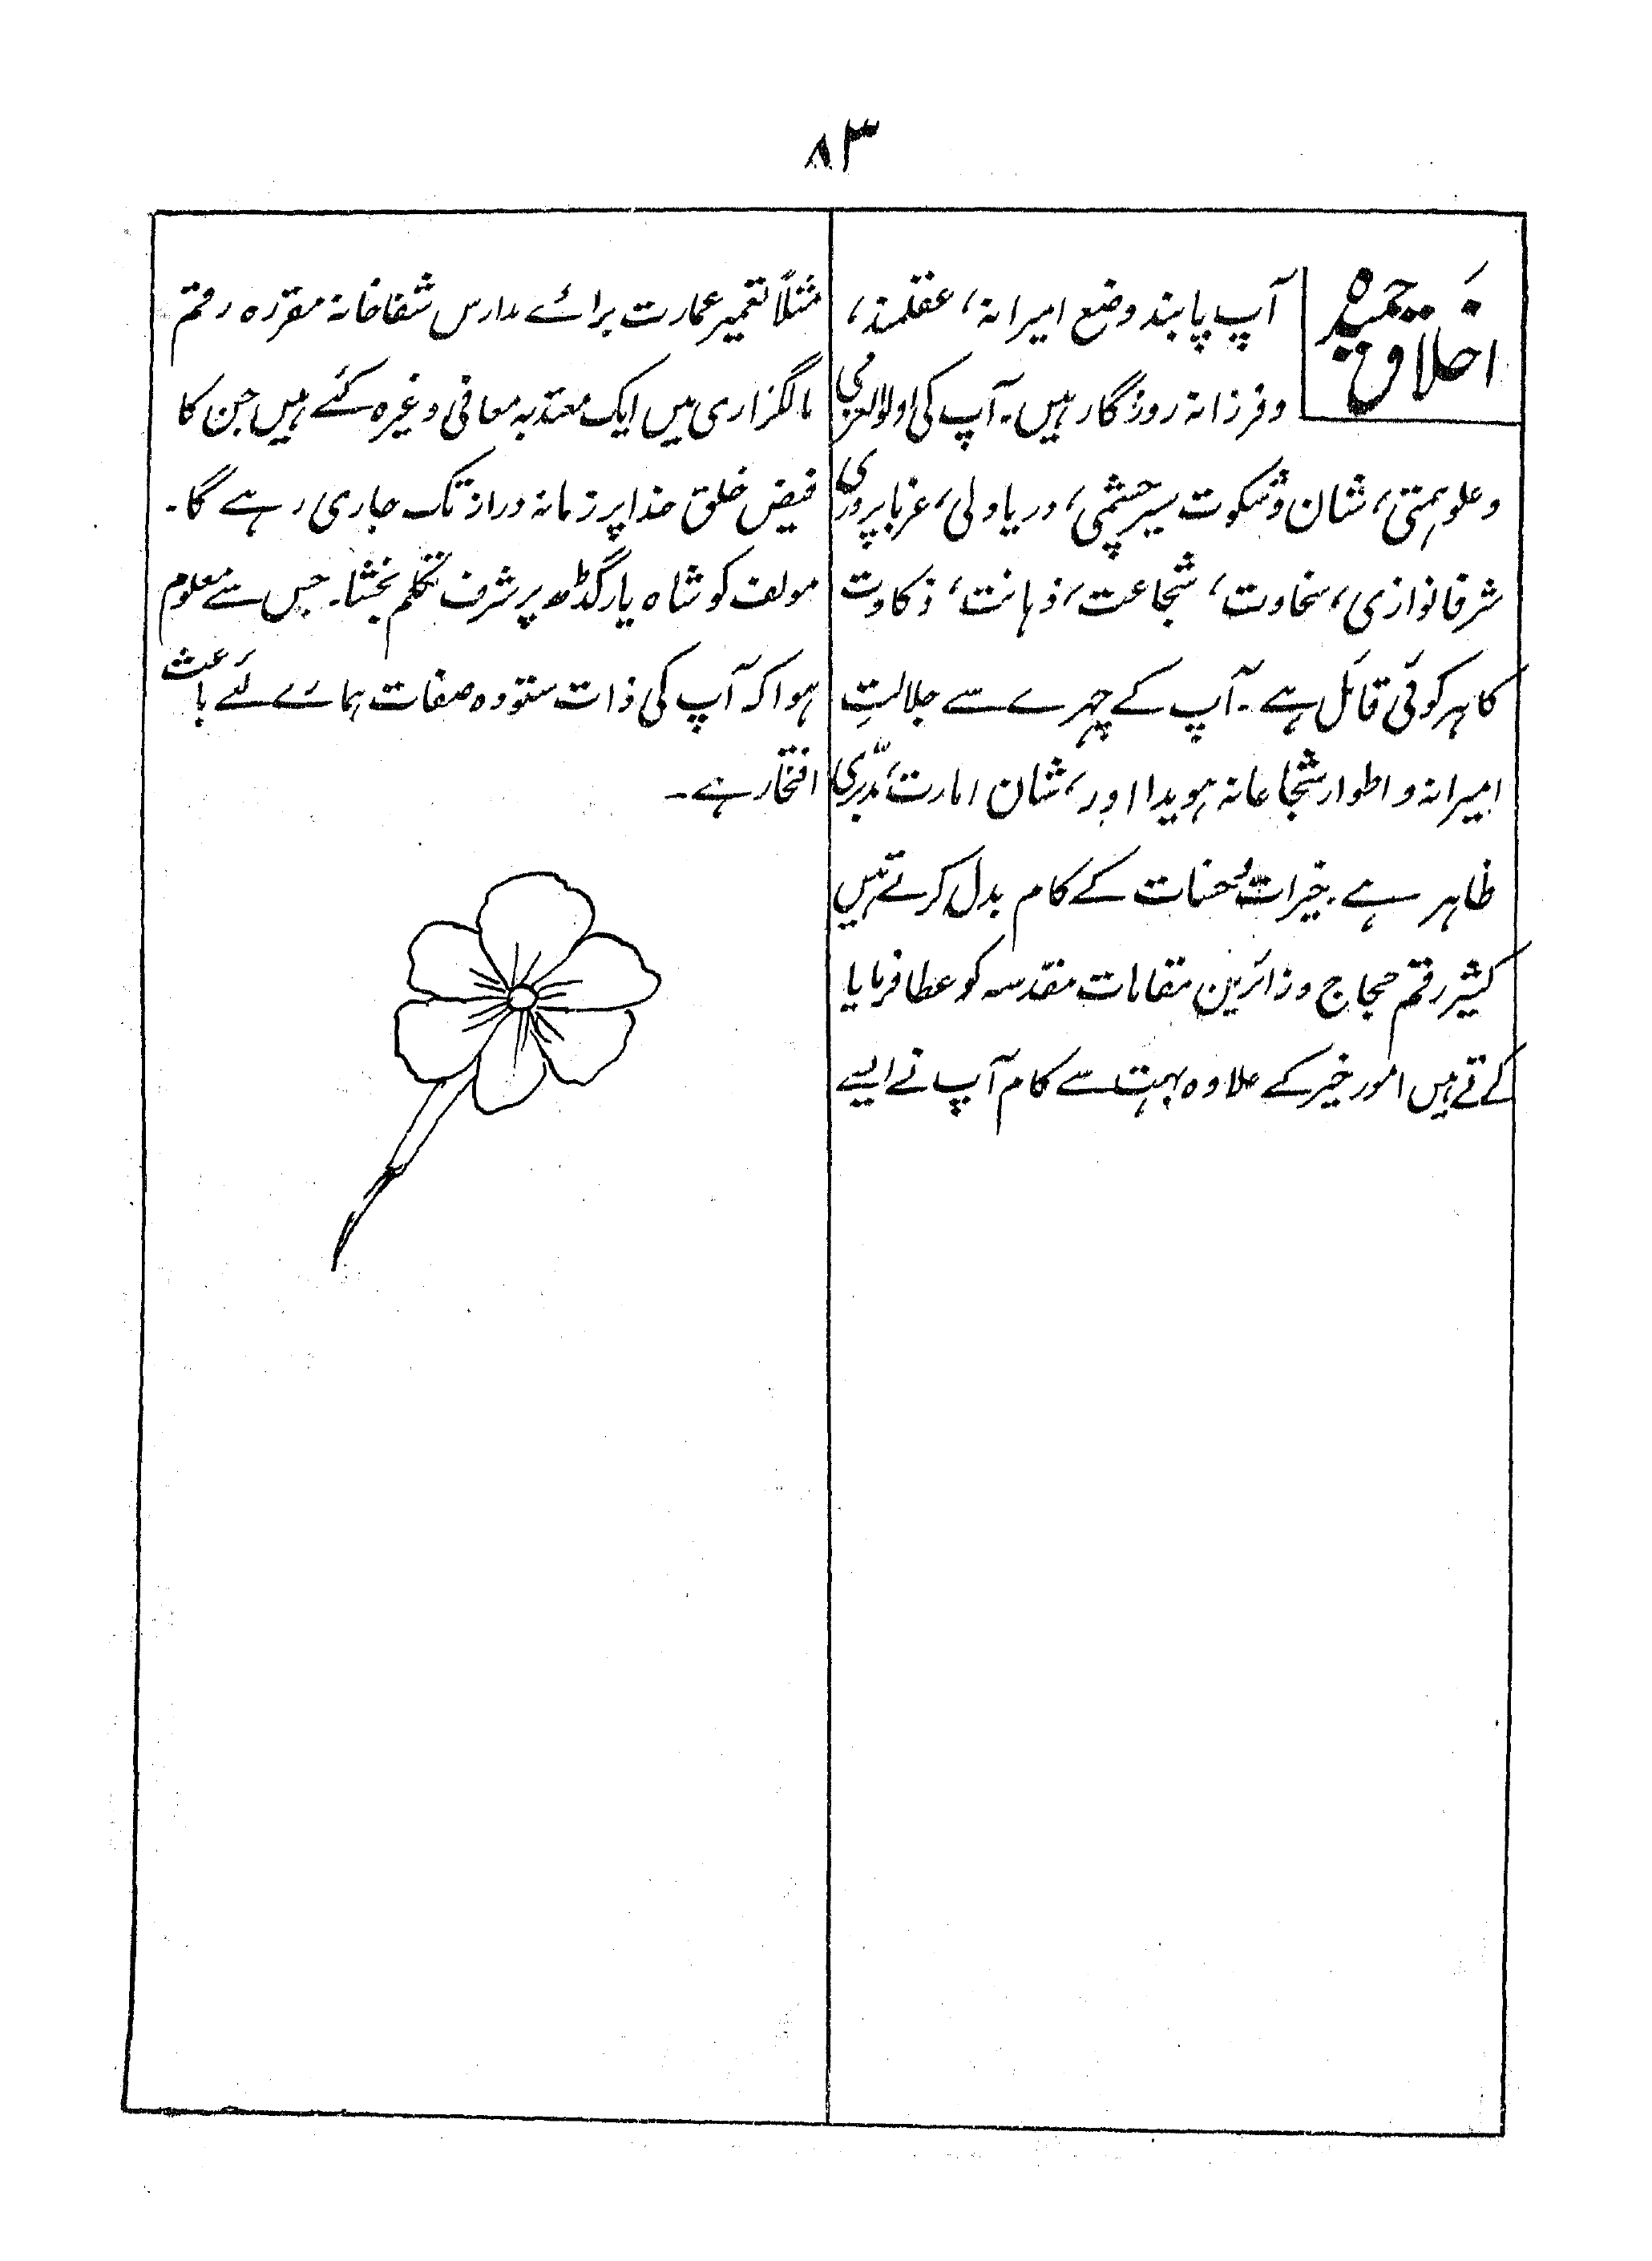 ۸۳
اخلاق حمیدہ
آپ پابند وضع امیرانہ، عقلمند،
و فرزانہ روزگار ہیں۔ آپ کی اولوالعزمی
و علو ہمتی، شان و شکوت سیر چشمی، دریا دلی، غربا پروری
شرفا نوازی، سخاوت، شجاعت، ذہانت، ذکاوت
کا ہر کوئی قائل ہے۔ آپ کے چہرے سے جلالتِ
امیرانہ و اطوار شجاعانہ ہویدا اور، شان امارت،
ظاہر ہے۔ خیرات و حسنات کے کام بدل کرتے ہیں
کثیر رقم حجاج و زائرین مقامات مقدسہ کو عطا فرمایا
کے تے ہیں امور خیر کے علاوہ بہت سے کام آپ نے ایسے
مثلاً تعمیر عمارت برائے مدارس شفاخانہ مقررہ رقم
مالگزاری میں ایک معتدبہ معافی وغیرہ کئے ہیں جن کا
فیض خلق خدا پر زمانہ دراز تک جاری رہے گا۔
مولف کو شاہ یار گڈھ پر شرف تکلم بخشا۔ جس سے معلوم
ہوا کہ آپ کی ذات ستودہ صفات ہمارے لئے باعث
افتخار ہے۔